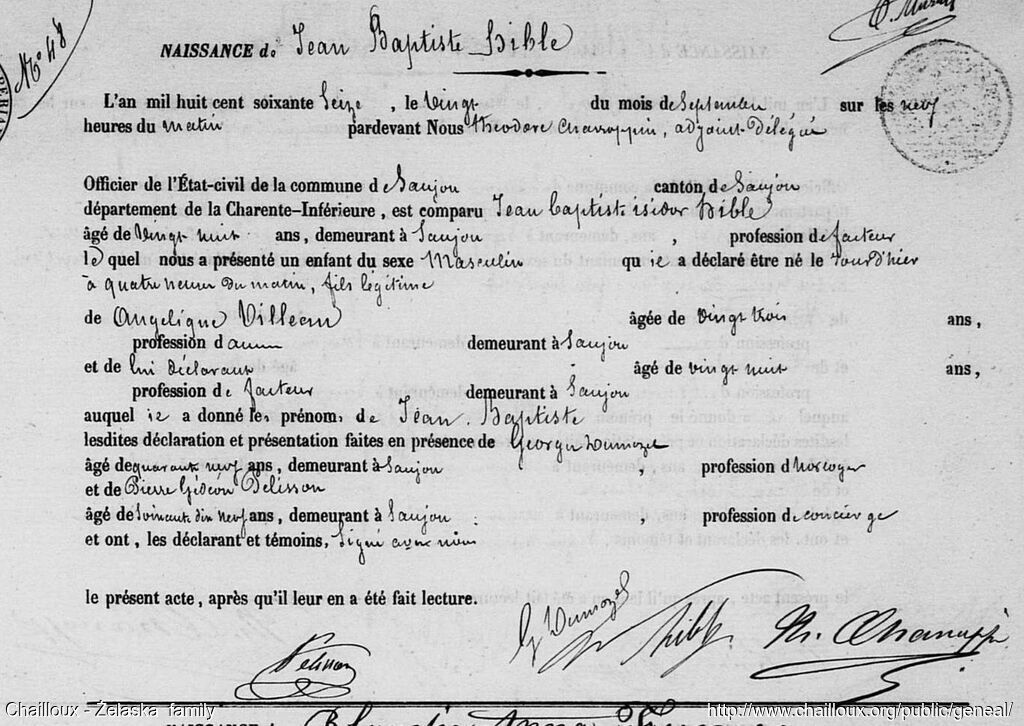 No. 48
NAISSANCE de Jean Baptiste Hible
L'an mil huit cent soixante Seize, le Vingt du mois de Septembre sur les neuf
heures du matin pardevant Nous Théodore Charroppin, adjoint délégué
Officier de l'État-civil de la commune de Saujon canton de Saujon
département de la Charente-Inférieure, est comparu Jean baptiste isidor Hible
âgé de Vingt huit ans, demeurant à Saujon, profession de facteur
le quel nous a présenté un enfant du sexe Masculin qu'il a déclaré être né le jour d'hier
à quatre heures du matin, fils légitime
de Angelique Villeau âgée de Vingt trois ans,
profession d'aucune demeurant à Saujon
et de lui déclarant âgé de vingt huit ans,
profession de facteur demeurant à Saujon
auquel il a donné les prénoms de Jean Baptiste
lesdites déclaration et présentation faites en présence de Georges Dumozel
âgé de quarante neuf ans, demeurant à Saujon, profession d'horloger
et de Pierre Gédéon Pelisson
âgé de Soixante dix neuf ans, demeurant à Saujon, profession de concierge
et ont, les déclarant et témoins, Signé avec nous
le présent acte, après qu'il leur en a été fait lecture.
G Dumozel Hible Th. Charroppin
Pelisson
Chailloux - Żelaska family http://www.chailloux.org/public/geneal/